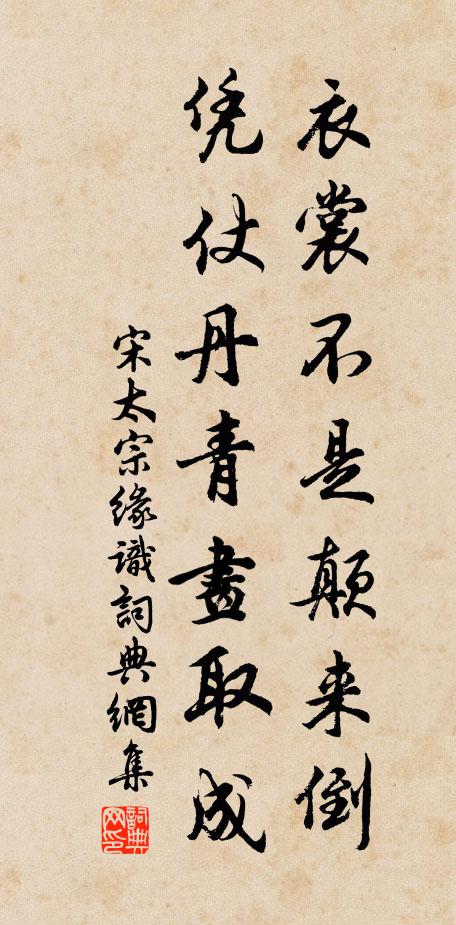 衣裳不是颠来倒
凭仗丹青畫取成
宋太宗缘識詞典網集
詞典网印